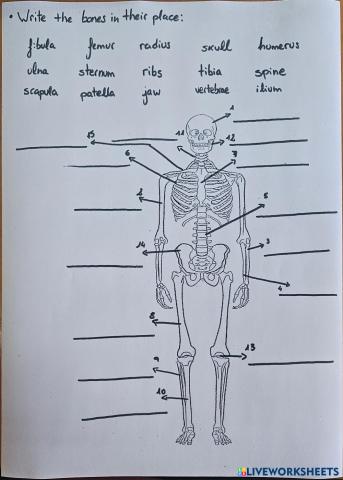 • Write the bones in their place:
fibula femur radius skull humerus
ulna sternum ribs tibia spine
scapula patella jaw vertebrae ilium
1
11 12
15
6 7
2 5
14 3
4
8
13
9
10
LIVEWORKSHEETS